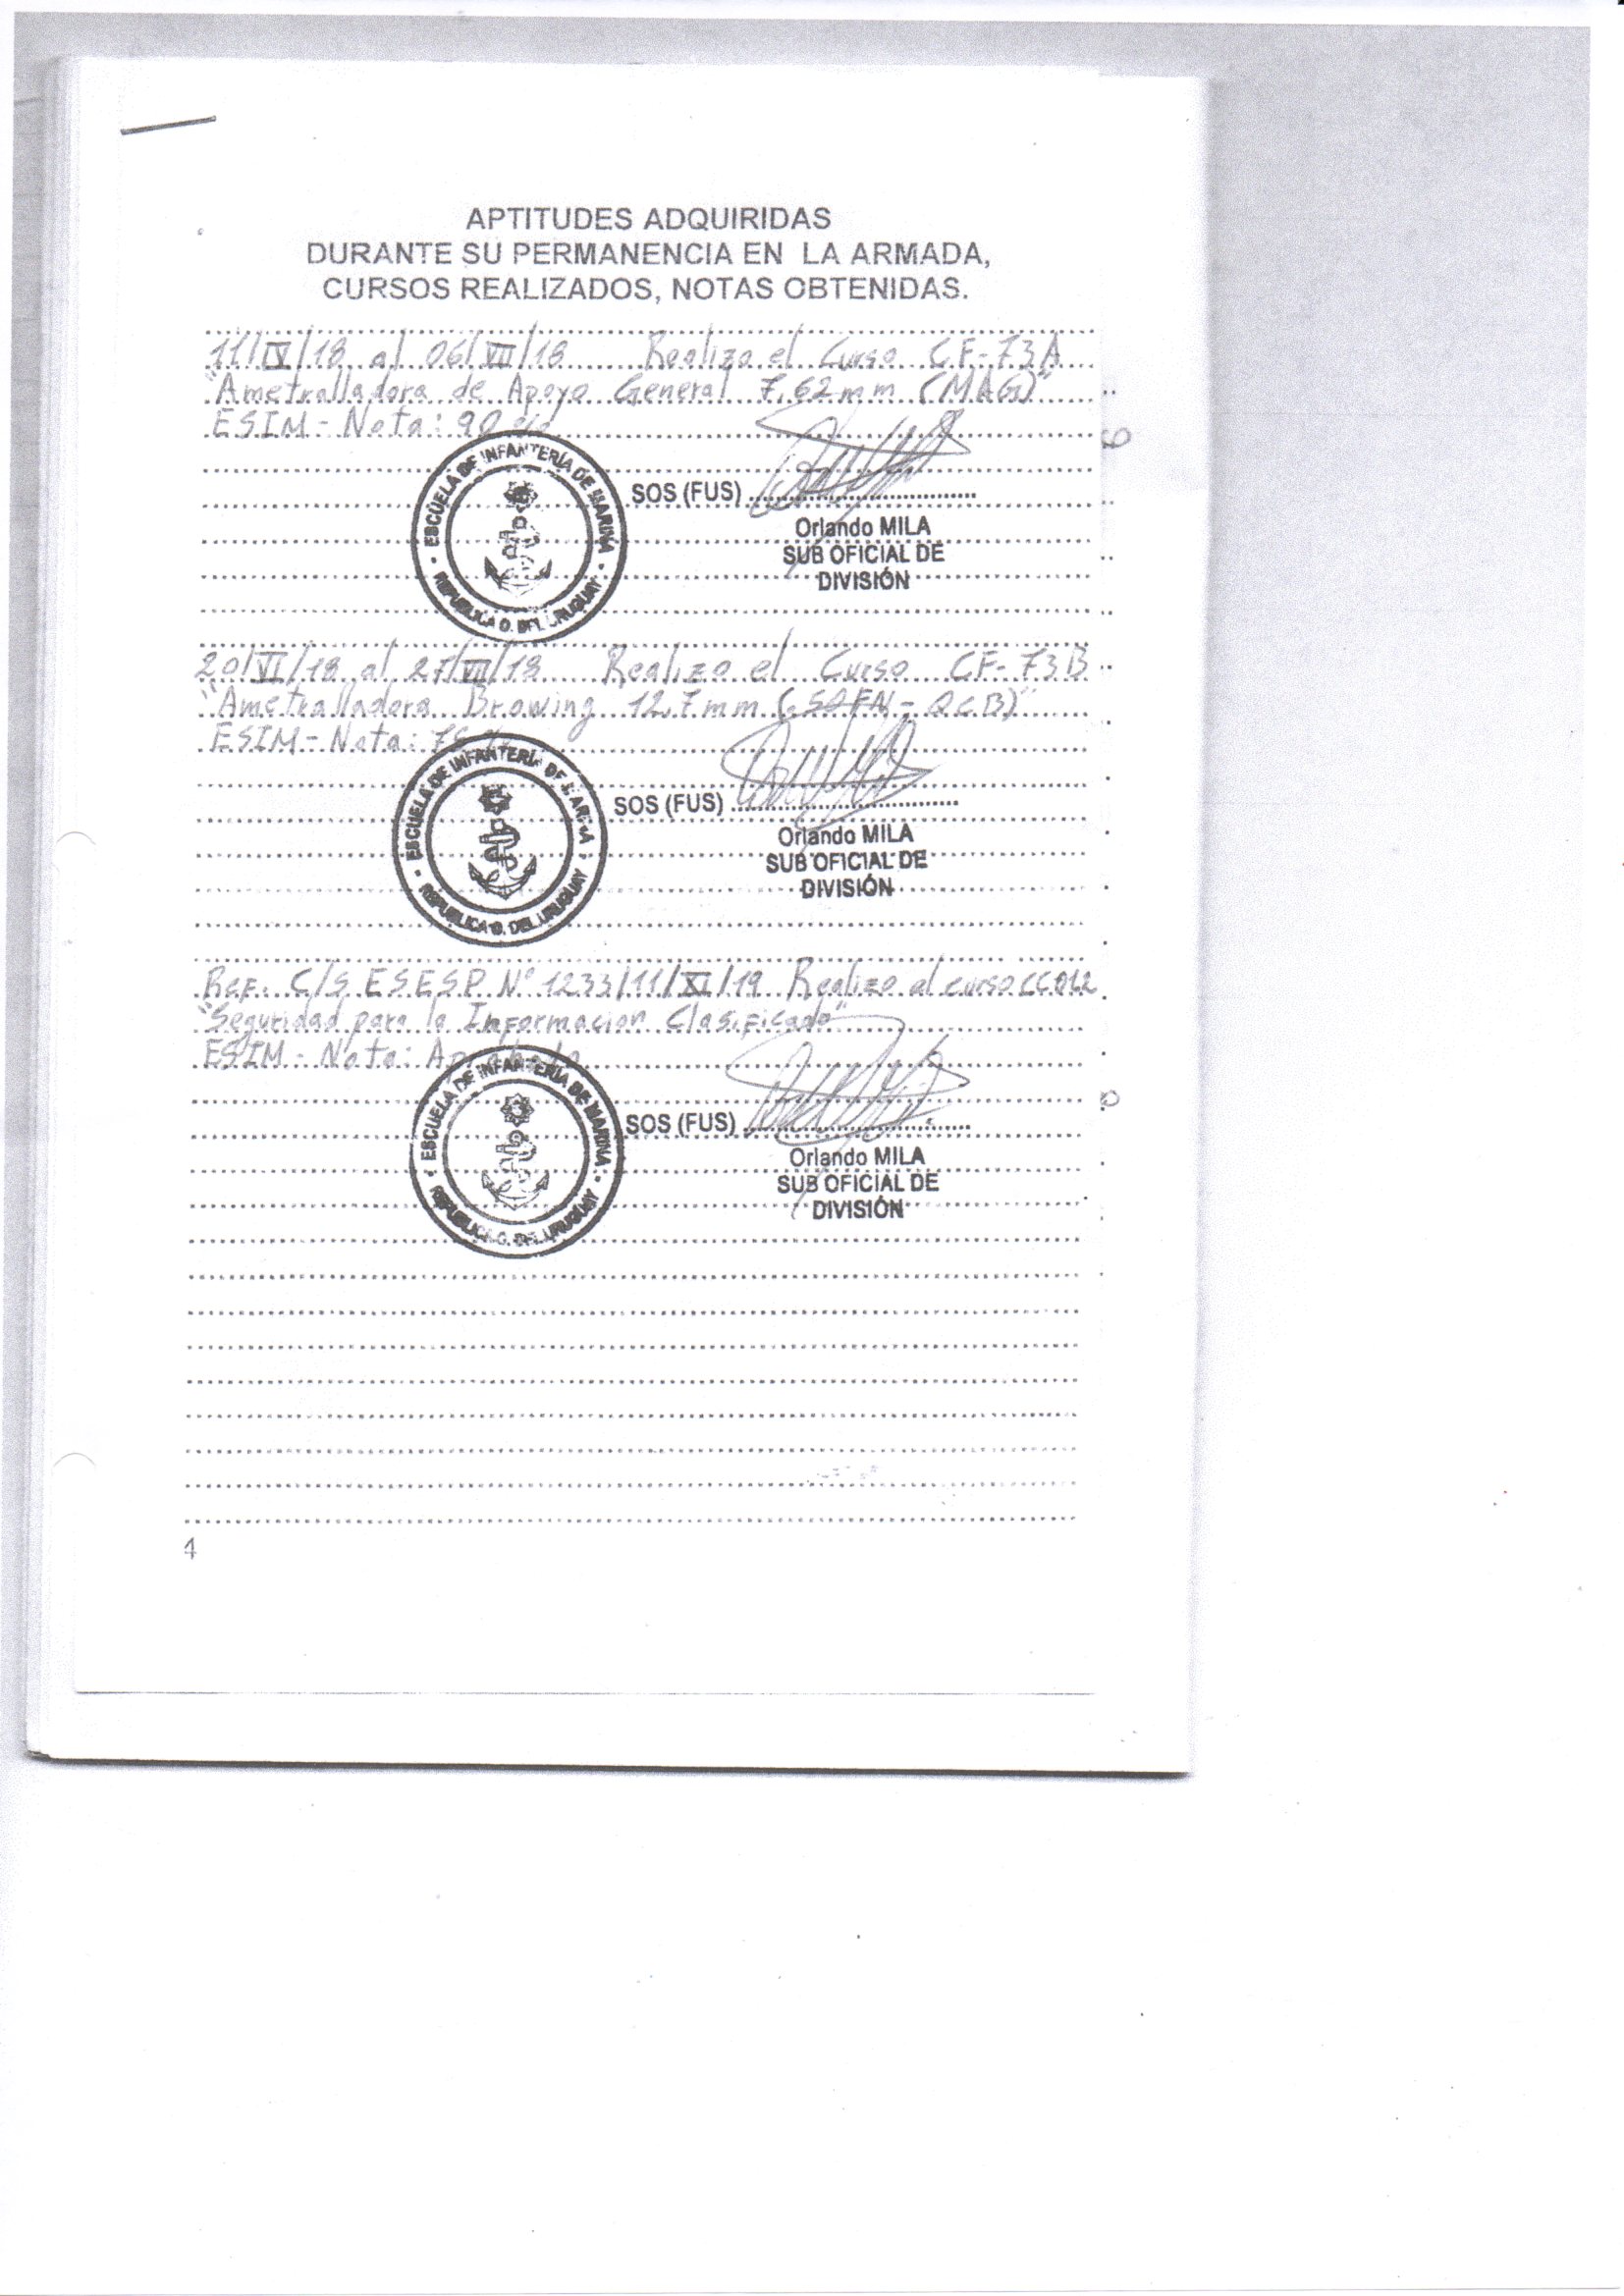 APTITUDES ADQUIRIDAS
DURANTE SU PERMANENCIA EN LA ARMADA,
CURSOS REALIZADOS, NOTAS OBTENIDAS.
11/IV/18 al 06/VII/18 Realizo el Curso CF-73A
"Ametralladora de Apoyo General 7,62mm (MAG)"
ESIM - Nota: 90 %
ESCUELA DE INFANTERÍA DE MARINA
REPUBLICA O. DEL URUGUAY
SOS (FUS)
Orlando MILA
SUB OFICIAL DE
DIVISIÓN
20/VI/18 al 27/VII/18 Realizo el Curso CF-73B
"Ametralladora Browing 12,7mm (.50FN - QCB)"
ESIM - Nota:
ESCUELA DE INFANTERÍA DE MARINA
REPUBLICA O. DEL URUGUAY
SOS (FUS)
Orlando MILA
SUB OFICIAL DE
DIVISIÓN
Ref. C/S ESESP Nº 1233/11/XI/19 Realizo al curso
"Seguridad para la Informacion Clasificada"
ESIM - Nota: Aprobado
ESCUELA DE INFANTERÍA DE MARINA
REPUBLICA O. DEL URUGUAY
SOS (FUS)
Orlando MILA
SUB OFICIAL DE
DIVISIÓN
4